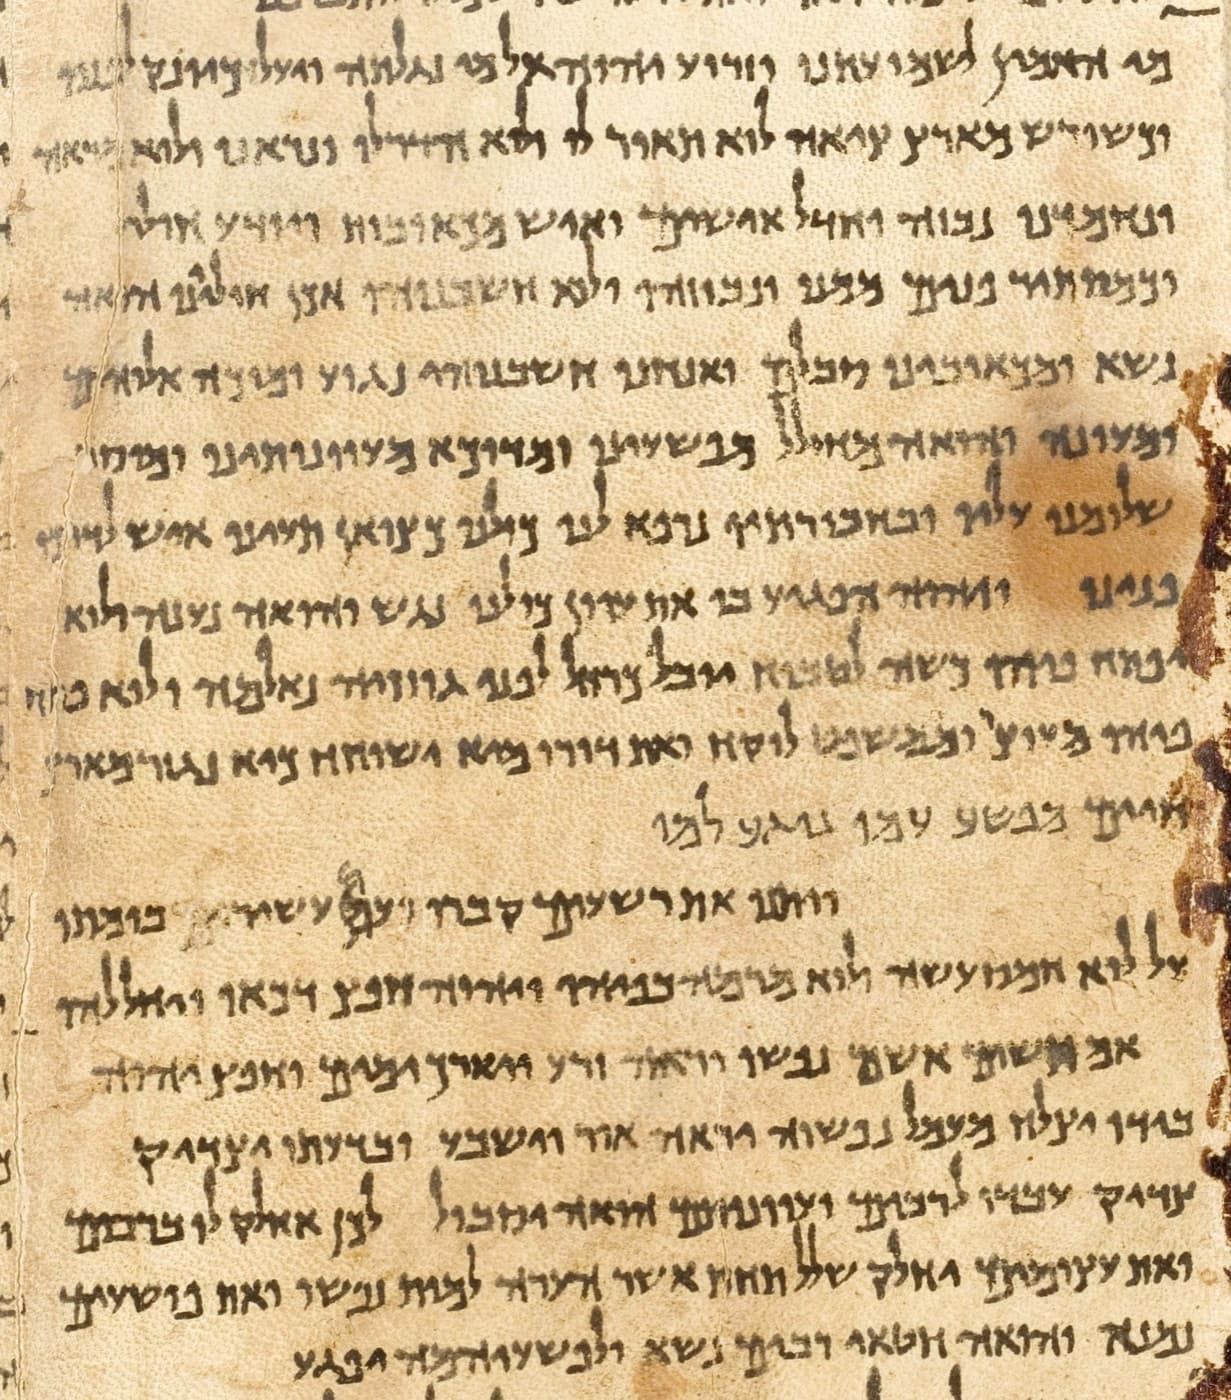 מי האמין לשמועתנו וזרוע יהוה אל מי נגלתה ויעל כיונק לפניו
וכשורש מארץ ציאה לוא תאור לו ולא הדר לו ונראנו ולוא מראה
ונחמדנו נבזה וחדל אישים ואיש מכאובות ויודע חולי
וכמסתיר פנים ממנו ונבוזהו ולא חשבנוהו אכן חוליינו הואה
נשא ומכאובינו סבלם ואנחנו חשבנוהו נגוע ומוכה אלוהים
ומעונה והואה מחולל מפשעינו ומדוכא מעוונותינו ומוסר
שלומנו עליו ובחבורתיו נרפא לנו כולנו כצואן תעינו איש לדרכו
פנינו ויהוה הפגיע בו את עוון כולנו נגש והואה נענה ולוא
יפתח פיהו כשה לטבוח יובל כרחל לפני גוזזיה נאלמה ולוא פתח
פיהו מעוצר וממשפט לוקח ואת דורו מיא ישוחח כיא נגזר מארץ
חיים מפשע עמו נוגע למו
ויתנו את רשעים קברו ועם עשיר בומתו
על לוא חמס עשה ולוא מרמה בפיהו ויהוה חפץ דכאו ויחללהו
אם תשים אשם נפשו יראה זרע ויארך ימים וחפץ יהוה
בידו יצלח מעמל נפשוה יראה אור וישבע ובדעתו יצדיק
צדיק עבדו לרבים ועוונותם הואה יסבול לכן אחלק לו ברבים
ואת עצומים יחלק שלל תחת אשר הערה למות נפשו ואת פושעים
נמנא והואה חטאי רבים נשא ולפשעיהמה יפגע